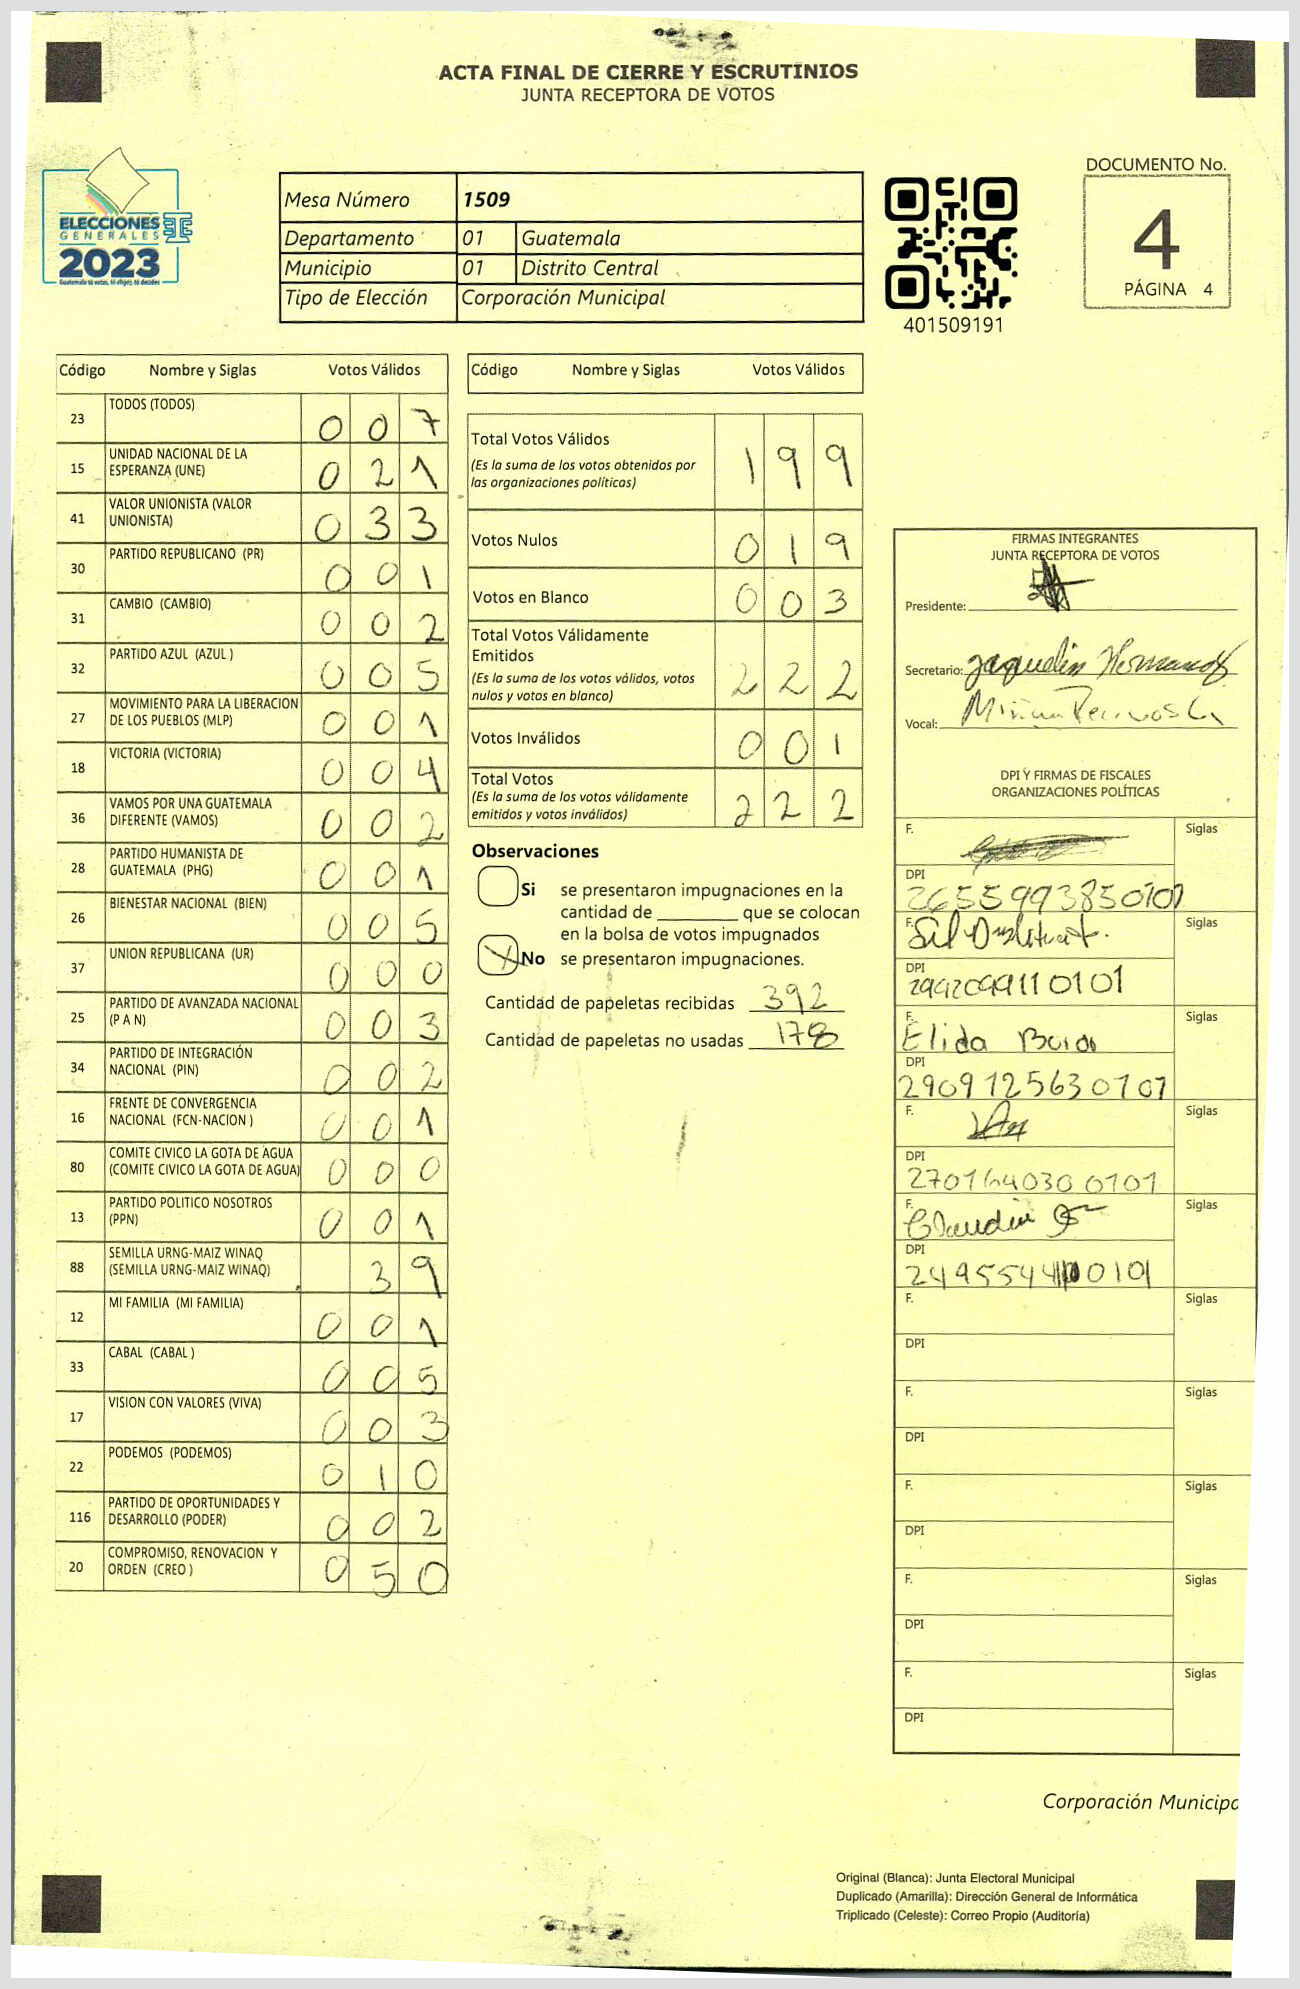 ACTA FINAL DE CIERRE Y ESCRUTINIOS
JUNTA RECEPTORA DE VOTOS
ELECCIONES
GENERALES
2023
Mesa Número 1509
Departamento 01 Guatemala
Municipio 01 Distrito Central
Tipo de Elección Corporación Municipal
401509191
DOCUMENTO No.
4
PÁGINA 4
Código Nombre y Siglas Votos Válidos
23 TODOS (TODOS) 0 0 7
15 UNIDAD NACIONAL DE LA
ESPERANZA (UNE) 0 2 1
41 VALOR UNIONISTA (VALOR
UNIONISTA) 0 3 3
30 PARTIDO REPUBLICANO (PR) 0 0 1
31 CAMBIO (CAMBIO) 0 0 2
32 PARTIDO AZUL (AZUL ) 0 0 5
27 MOVIMIENTO PARA LA LIBERACION
DE LOS PUEBLOS (MLP) 0 0 1
18 VICTORIA (VICTORIA) 0 0 4
36 VAMOS POR UNA GUATEMALA
DIFERENTE (VAMOS) 0 0 2
28 PARTIDO HUMANISTA DE
GUATEMALA (PHG) 0 0 1
26 BIENESTAR NACIONAL (BIEN) 0 0 5
37 UNION REPUBLICANA (UR) 0 0 0
25 PARTIDO DE AVANZADA NACIONAL
(P A N) 0 0 3
34 PARTIDO DE INTEGRACIÓN
NACIONAL (PIN) 0 0 2
16 FRENTE DE CONVERGENCIA
NACIONAL (FCN-NACION ) 0 0 1
80 COMITE CIVICO LA GOTA DE AGUA
(COMITE CIVICO LA GOTA DE AGUA) 0 0 0
13 PARTIDO POLITICO NOSOTROS
(PPN) 0 0 1
88 SEMILLA URNG-MAIZ WINAQ
(SEMILLA URNG-MAIZ WINAQ) 3 9
12 MI FAMILIA (MI FAMILIA) 0 0 1
33 CABAL (CABAL ) 0 0 5
17 VISION CON VALORES (VIVA) 0 0 3
22 PODEMOS (PODEMOS) 0 1 0
116 PARTIDO DE OPORTUNIDADES Y
DESARROLLO (PODER) 0 0 2
20 COMPROMISO, RENOVACION Y
ORDEN (CREO ) 0 5 0
Código Nombre y Siglas Votos Válidos
Total Votos Válidos 1 9 9
(Es la suma de los votos obtenidos por
las organizaciones políticas)
Votos Nulos 0 1 9
Votos en Blanco 0 0 3
Total Votos Válidamente
Emitidos 2 2 2
(Es la suma de los votos válidos, votos
nulos y votos en blanco)
Votos Inválidos 0 0 1
Total Votos 2 2 2
(Es la suma de los votos válidamente
emitidos y votos inválidos)
Observaciones
Si se presentaron impugnaciones en la
cantidad de ________ que se colocan
en la bolsa de votos impugnados
No se presentaron impugnaciones.
Cantidad de papeletas recibidas 392
Cantidad de papeletas no usadas 178
FIRMAS INTEGRANTES
JUNTA RECEPTORA DE VOTOS
Presidente:
Secretario: Jaquelin
Vocal:
DPI Y FIRMAS DE FISCALES
ORGANIZACIONES POLÍTICAS
F. Siglas
DPI
2655993850101
F. Siglas
DPI
2992099110101
F. Siglas
Elida
DPI
2909125630101
F. Siglas
DPI
2701640300101
F. Siglas
Claudia
DPI
F. Siglas
DPI
F. Siglas
DPI
F. Siglas
DPI
F. Siglas
DPI
F. Siglas
DPI
Corporación Municipa
Original (Blanca): Junta Electoral Municipal
Duplicado (Amarilla): Dirección General de Informática
Triplicado (Celeste): Correo Propio (Auditoría)